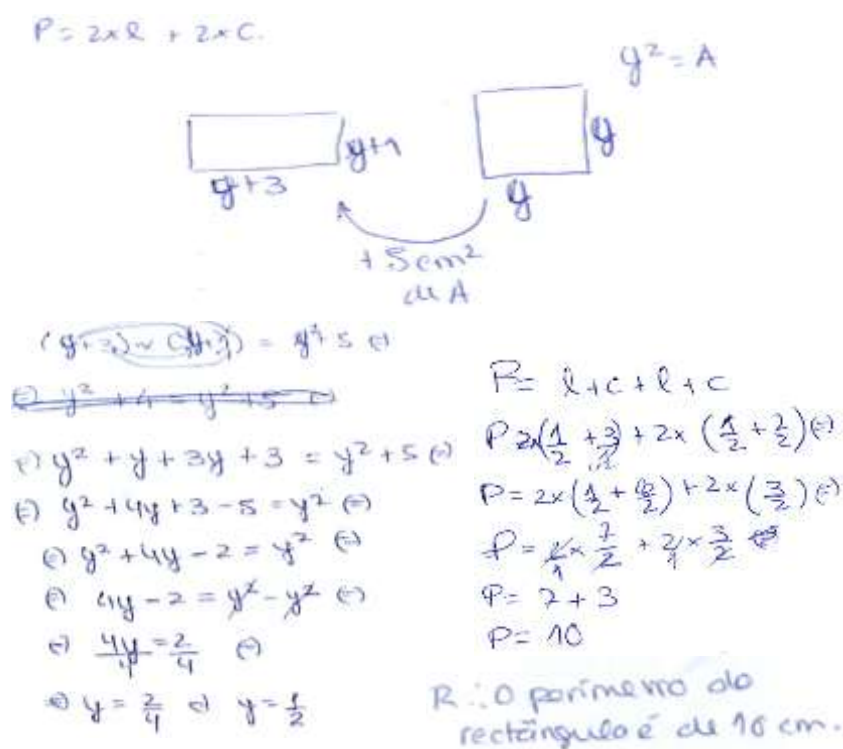 P = 2×l + 2×C.
y² = A
y+1
y+3
y
y
+5cm²
de A
(y+3)×(y+1) = y²+5 (=)
(=) y² + 4 = y² + 5 (=)
(=) y² + y + 3y + 3 = y² + 5 (=)
(=) y² + 4y + 3 - 5 = y² (=)
(=) y² + 4y - 2 = y² (=)
(=) 4y - 2 = y² - y² (=)
(=) 4y/4 = 2/4 (=)
(=) y = 2/4 (=) y = 1/2
P = l + c + l + c
P 2×(1/2 + 3/1) + 2× (1/2 + 2/2) (=)
P = 2×(1/2 + 6/2) + 2× (3/2) (=)
P = 2/1 × 7/2 + 2/1 × 3/2
P = 7 + 3
P = 10
R.: O perímetro do
rectângulo é de 10 cm.